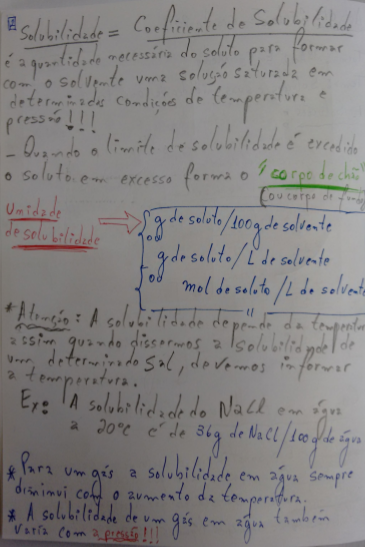 Solubilidade = Coeficiente de Solubilidade
é a quantidade necessária do soluto para formar
com o solvente uma solução saturada em
determinadas condições de temperatura e
pressão!!!
- Quando o limite de solubilidade é excedido
o soluto em excesso forma o "corpo de chão"
(ou corpo de fundo
Unidade
de solubilidade
g de soluto/100g de solvente
ou
g de soluto/L de solvente
ou
mol de soluto/L de solvente
* Atenção: A solubilidade depende da temperatura
assim quando dissermos a solubilidade de
um determinado sal, devemos informar
a temperatura.
Ex: A solubilidade do NaCl em água
a 20°C é de 36g de NaCl/100g de água
* Para um gás a solubilidade em água sempre
diminui com o aumento da temperatura.
* A solubilidade de um gás em água também
varia com a pressão!!!